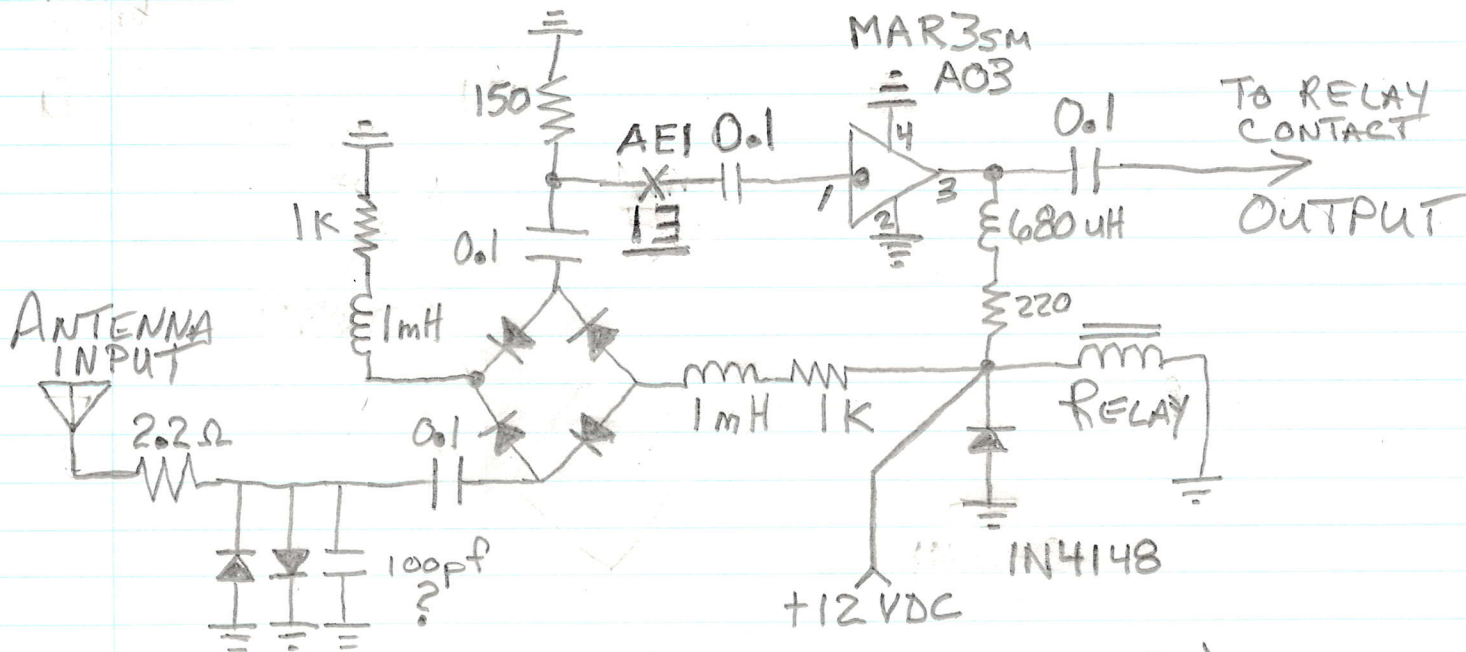 MAR3SM
A03
4
150
AE1
0.1
0.1
TO RELAY
CONTACT
1
3
2
13
OUTPUT
1K
0.1
680uH
220
1mH
ANTENNA
INPUT
2.2Ω
0.1
1mH
1K
RELAY
100pf
?
1N4148
+12VDC